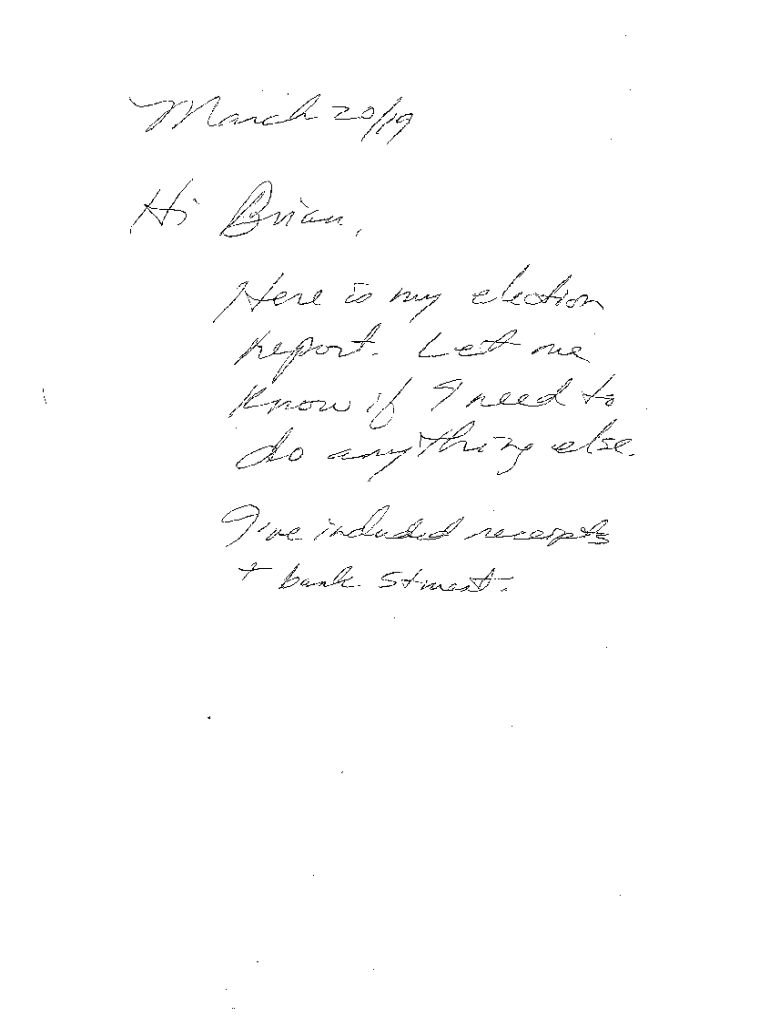 March 20/19
Hi Brian,
Here is my election
report. Let me
know if I need to
do anything else.
I've included receipts
+ bank stment.